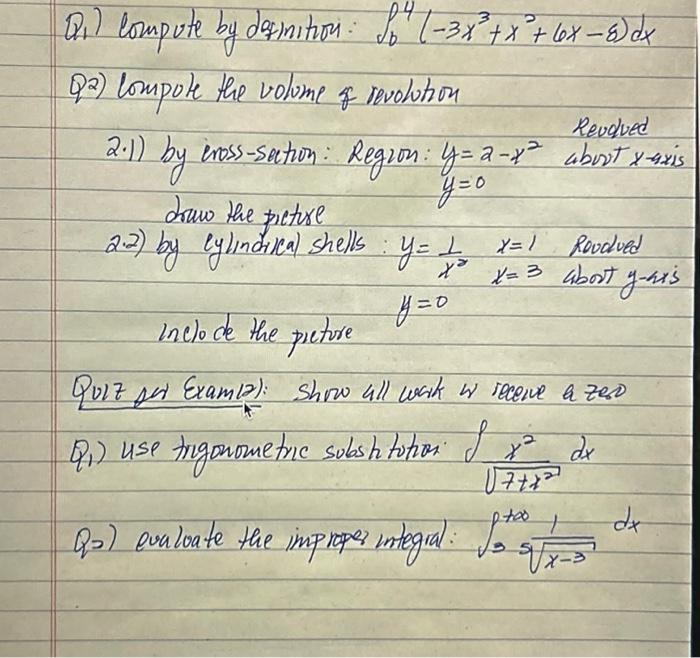 Q1) Compute by definition: ∫₀⁴ (-3x³+x²+6x-8)dx
Q2) Compute the volume of revolution
2.1) by cross-section: Region: y=2-x² Revolved about x-axis
y=0
draw the picture
2.2) by cylindrical shells: y=1/x² x=1 x=3 Revolved about y-axis
y=0
include the picture
Quiz Exam(2): Show all work or receive a zero
Q1) use trigonometric substitution ∫ x²/√(7+x²) dx
Q2) evaluate the improper integral: ∫₃^+∞ 1/⁵√(x-3) dx